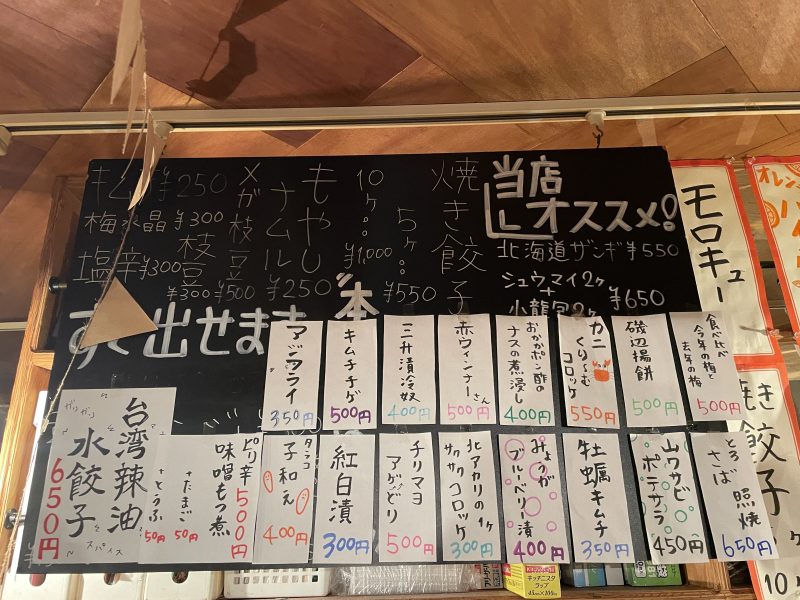 当店
オススメ!
北海道ザンギ ¥550
シュウマイ2ヶ
+
小龍包2ヶ
¥650
焼き餃子
5ヶ
¥550
10ヶ
¥1,000
もやし
ナムル
¥250
メガ枝豆
¥500
枝豆
¥300
¥250
梅水晶 ¥300
塩辛 ¥300
すぐ出せます
食べ比べ
今年の梅と
去年の梅
500円
磯辺揚餅
500円
カニ
くりーむ
コロッケ
550円
おかかポン酢の
ナスの煮浸し
400円
赤ウィンナーさん
500円
三升漬冷奴
400円
キムチチゲ
500円
アジフライ
350円
とろさば照焼
650円
山ワサビ
ポテサラ
450円
牡蠣キムチ
350円
みょうが
ブルーベリー漬
400円
北アカリの1ヶ
サクサクコロッケ
300円
チリマヨ
アゲどり
500円
紅白漬
300円
タラコ
子和え
400円
ピリ辛
味噌もつ煮
500円
+たまご
50円
+とうふ
50円
台湾辣油
水餃子
スパイス
650円
モロキュー
オレン
焼き餃子
10ヶ
キッチニスタ
ラップ